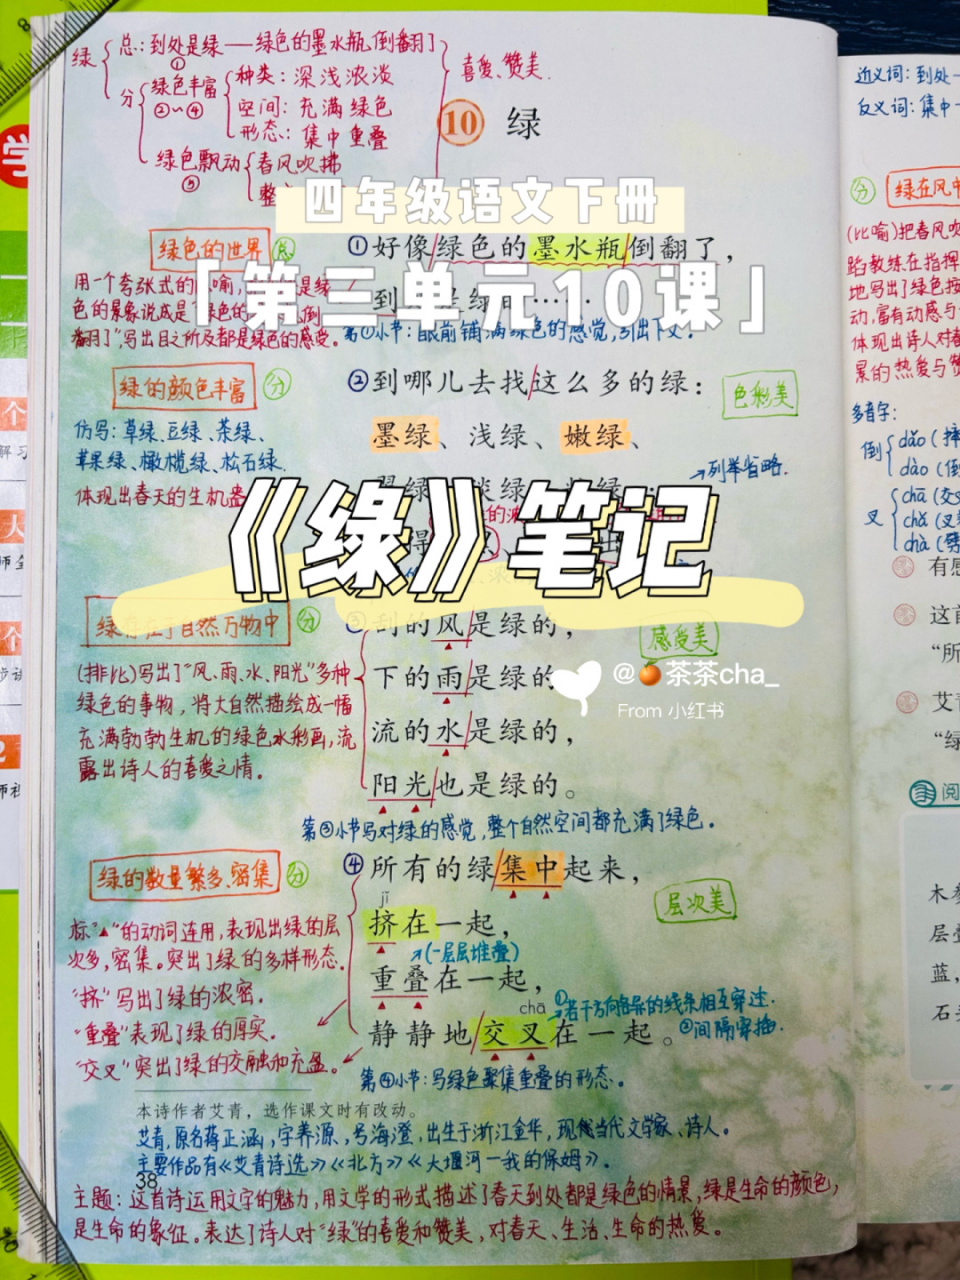 绿
总:到处是绿——绿色的墨水瓶倒翻了
①
分
绿色丰富
②~④
种类:深浅浓淡
空间:充满绿色
形态:集中重叠
绿色飘动
⑤
春风吹拂
整
喜爱、赞美.
10 绿
四年级语文下册
「第三单元10课」
《绿》笔记
@🍊茶茶cha_
From 小红书
绿色的世界 总
①好像绿色的墨水瓶倒翻了,
到 是绿的……
用一个夸张式的 喻,
色的景象说成是 绿色的 倒
翻了",写出目之所及都是绿色的感受。
第①小节:眼前铺满绿色的感觉,引出下文.
绿的颜色丰富 分
②到哪儿去找这么多的绿:
色彩美
墨绿、浅绿、嫩绿、
仿写:草绿、豆绿、茶绿、
苹果绿、橄榄绿、松石绿.
列举省略.
体现出春天的生机盎
自然万物中 分
③刮的风是绿的,
感受美
下的雨是绿的
流的水是绿的,
阳光也是绿的。
(排比)写出了"风、雨、水、阳光"多种
绿色的事物,将大自然描绘成一幅
充满勃勃生机的绿色水彩画,流
露出诗人的喜爱之情。
第③小节写对绿的感觉,整个自然空间都充满了绿色。
绿的数量繁多、密集 分
④所有的绿集中起来,
层次美
jǐ
挤在一起,
(一层层堆叠)
重叠在一起,
chā
静静地交叉在一起。
①若干方向各异的线条相互穿过.
②间隔穿插.
标"▲"的动词连用,表现出绿的层
次多,密集。突出了绿的多样形态.
"挤"写出了绿的浓密.
"重叠"表现了绿的厚实.
"交叉"突出了绿的交融和充盈.
第④小节:写绿色聚集重叠的形态。
本诗作者艾青,选作课文时有改动。
艾青,原名蒋正涵,字养源,号海澄,出生于浙江金华,现代当代文学家、诗人。
主要作品有《艾青诗选》《北方》《大堰河—我的保姆》.
38
主题:这首诗运用文字的魅力,用文学的形式描述了春天到处都是绿色的情景,绿是生命的颜色,
是生命的象征。表达了诗人对"绿"的喜爱和赞美,对春天、生活、生命的热爱。
近义词:到处—
反义词:集中—
分 绿在风中
(比喻)把春风吹
蹈教练在指挥
地写出了绿色按
动,富有动感与
体现出诗人对春
景的热爱与赞
多音字:
倒
dǎo(摔
dào(倒
叉
chā(交叉
chǎ(叉
chà(劈
有感
这首
"所
艾青
"绿
阅
木参
层叠
蓝,
石头